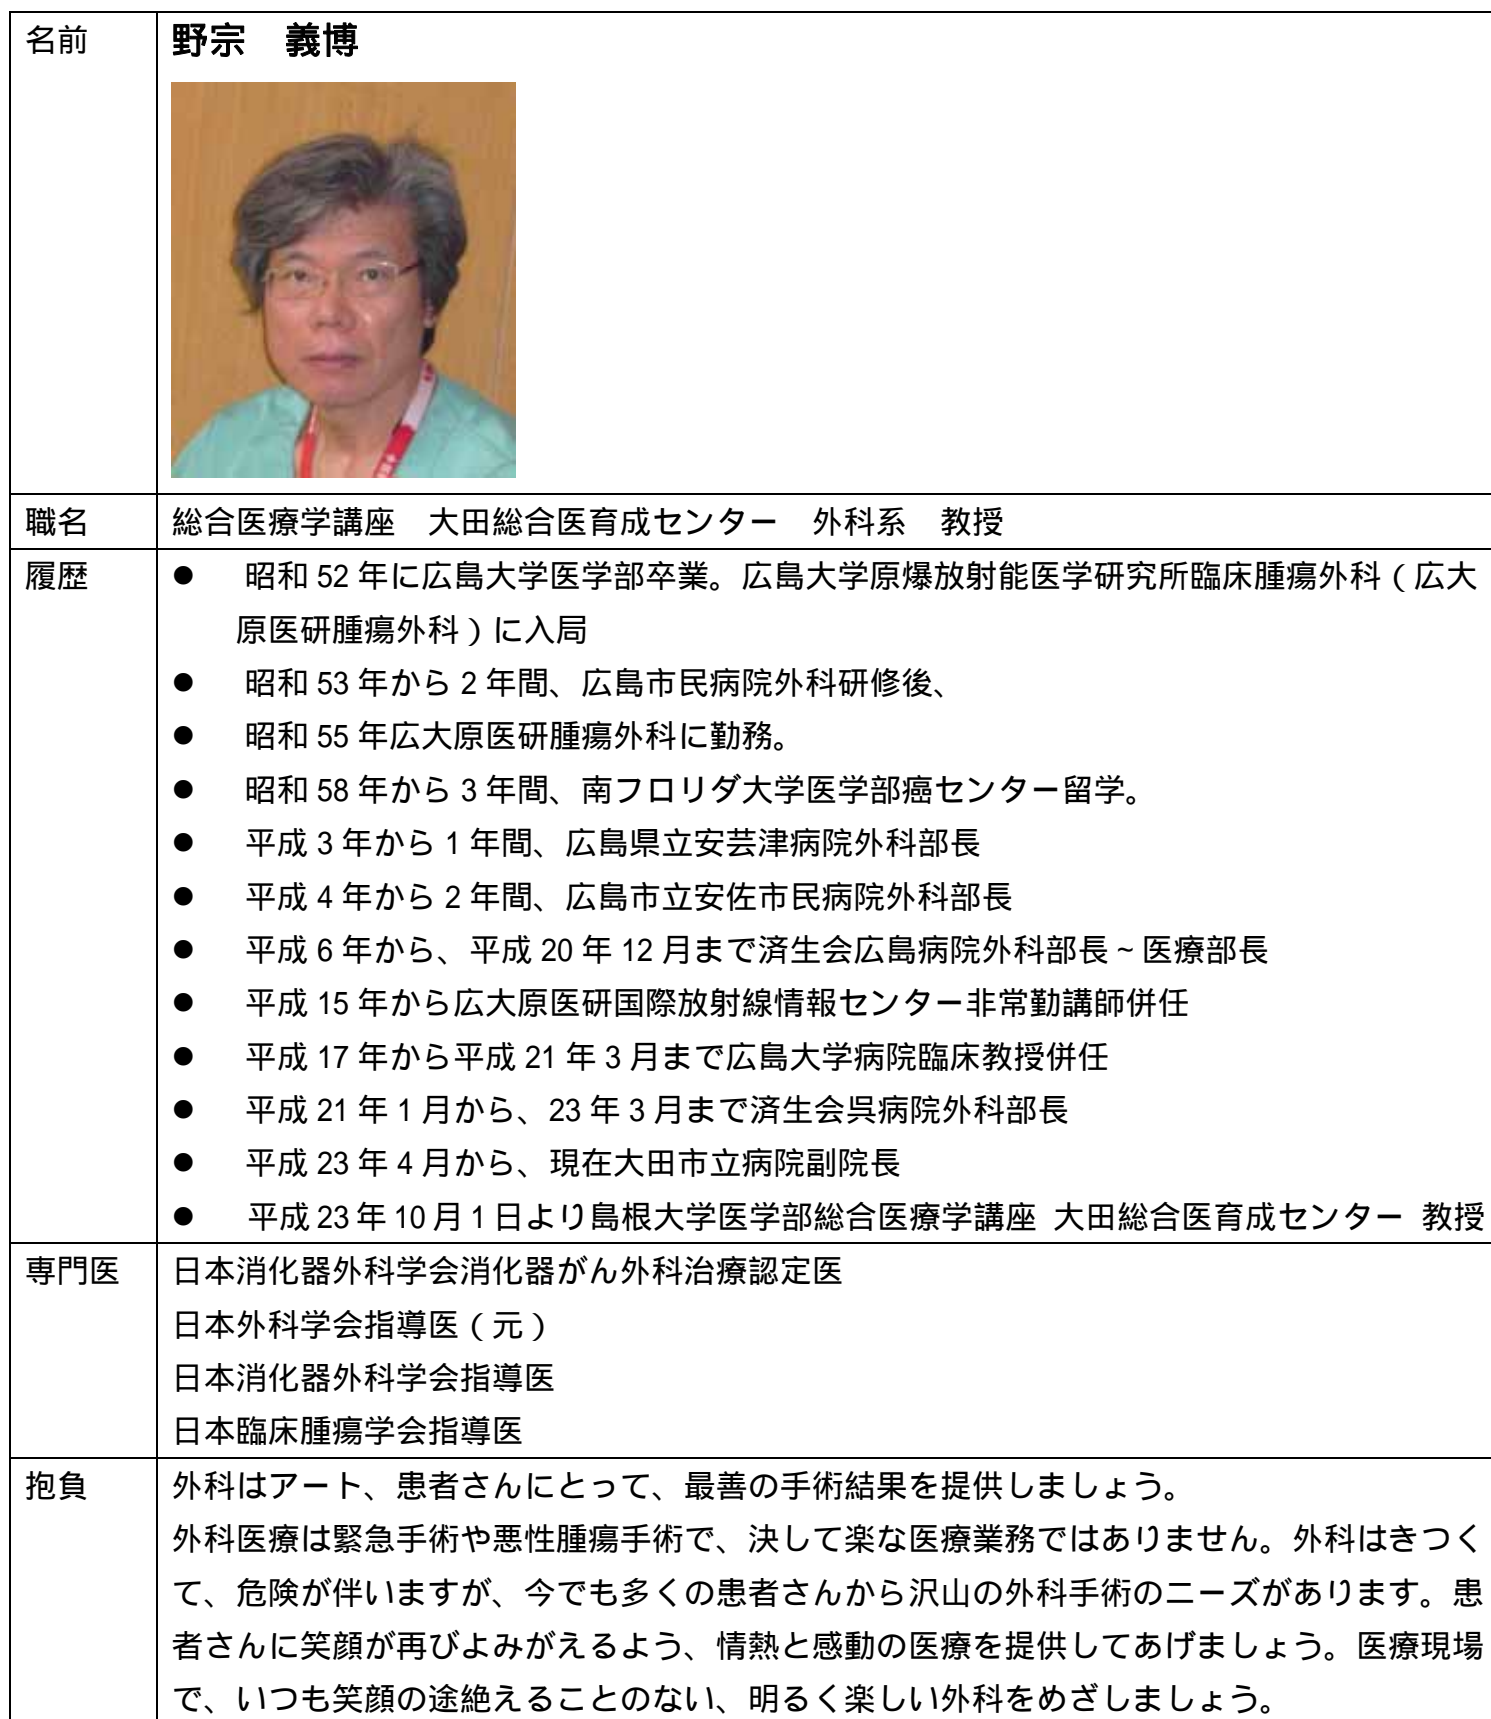 名前 野宗　義博
職名 総合医療学講座　大田総合医育成センター　外科系　教授
履歴 ● 昭和 52 年に広島大学医学部卒業。広島大学原爆放射能医学研究所臨床腫瘍外科（広大
原医研腫瘍外科）に入局
● 昭和 53 年から 2 年間、広島市民病院外科研修後、
● 昭和 55 年広大原医研腫瘍外科に勤務。
● 昭和 58 年から 3 年間、南フロリダ大学医学部癌センター留学。
● 平成 3 年から 1 年間、広島県立安芸津病院外科部長
● 平成 4 年から 2 年間、広島市立安佐市民病院外科部長
● 平成 6 年から、平成 20 年 12 月まで済生会広島病院外科部長～医療部長
● 平成 15 年から広大原医研国際放射線情報センター非常勤講師併任
● 平成 17 年から平成 21 年 3 月まで広島大学病院臨床教授併任
● 平成 21 年 1 月から、23 年 3 月まで済生会呉病院外科部長
● 平成 23 年 4 月から、現在大田市立病院副院長
● 平成 23 年 10 月 1 日より島根大学医学部総合医療学講座 大田総合医育成センター 教授
専門医 日本消化器外科学会消化器がん外科治療認定医
日本外科学会指導医（元）
日本消化器外科学会指導医
日本臨床腫瘍学会指導医
抱負 外科はアート、患者さんにとって、最善の手術結果を提供しましょう。
外科医療は緊急手術や悪性腫瘍手術で、決して楽な医療業務ではありません。外科はきつく
て、危険が伴いますが、今でも多くの患者さんから沢山の外科手術のニーズがあります。患
者さんに笑顔が再びよみがえるよう、情熱と感動の医療を提供してあげましょう。医療現場
で、いつも笑顔の途絶えることのない、明るく楽しい外科をめざしましょう。